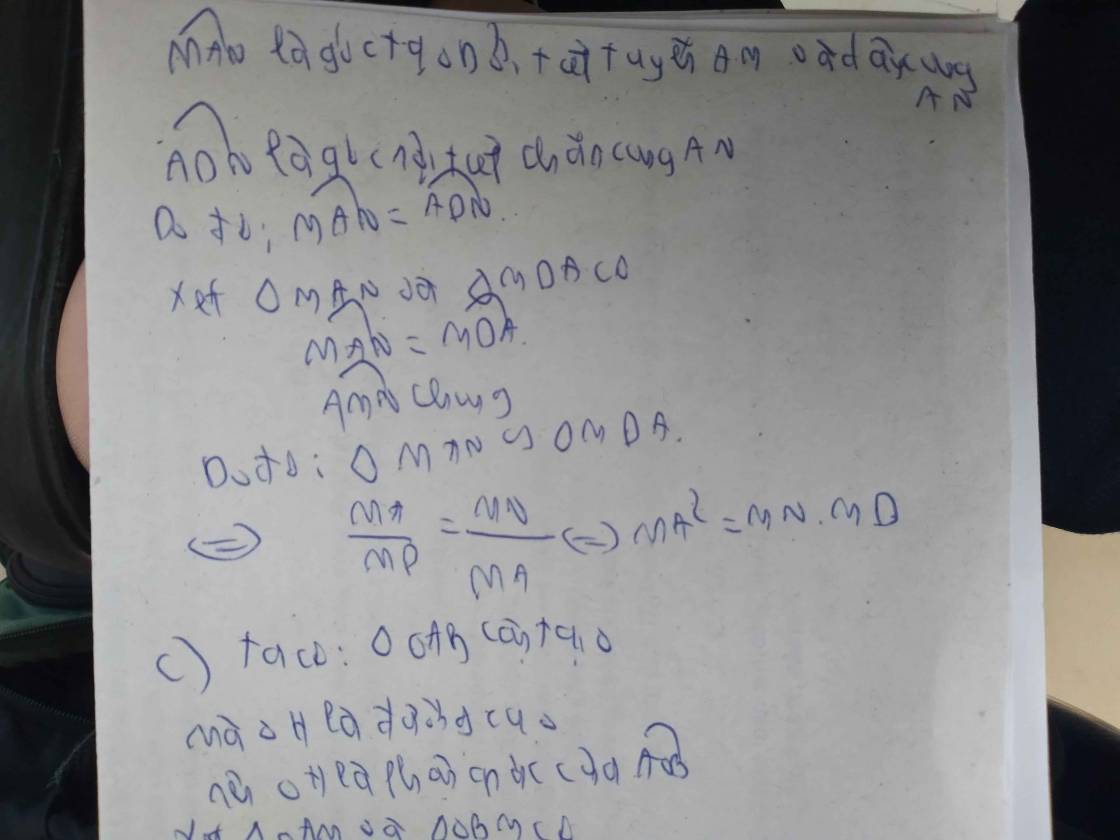 MAN là góc tạo bởi tiếp tuyến AM và dây cung
AN
ADN là góc nội tiếp chắn cung AN
Do đó: MAN = ADN.
Xét Δ MAN và Δ MDA có
MAN = MDA.
AMN chung
Do đó: Δ MAN ∽ Δ MDA.
<=> MA/MD = MN/MA <=> MA² = MN. MD
c) ta có: Δ OAB cân tại O
mà OH là đường cao
nên OH là phân giác của AOB
Xét Δ OAM và Δ OBM có